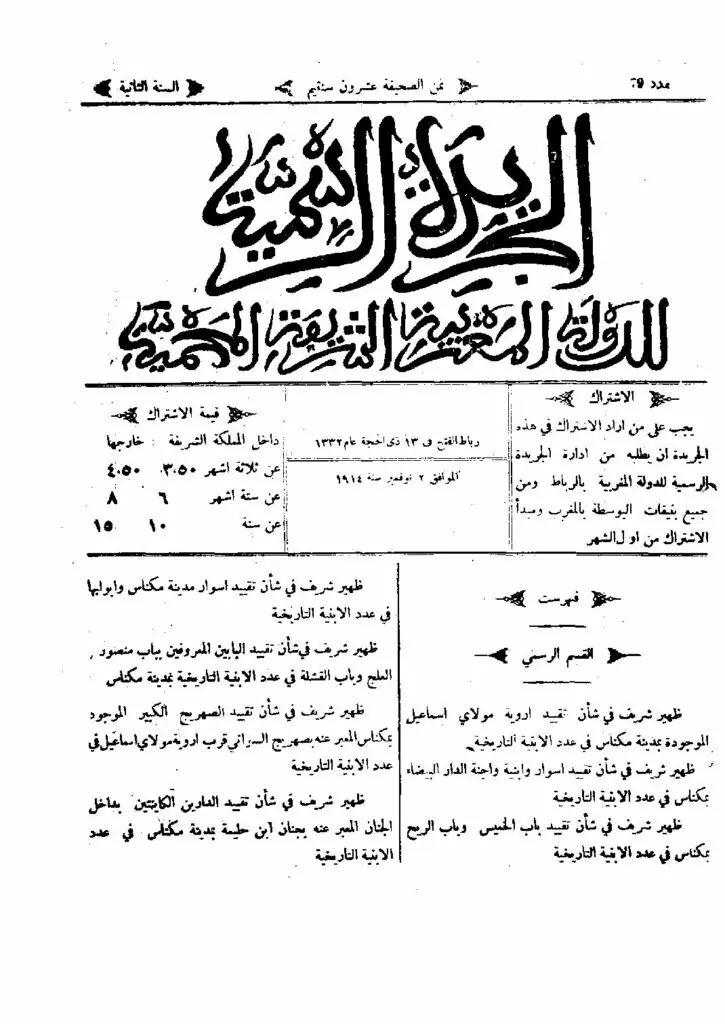 عدد 79
ثمن الصحيفة عشرون سنتيم
السنة الثانية
الجريدة الرسمية
للدولة المغربية الشريفة المحمية
الاشتراك
يجب على من اراد الاشتراك في هذه
الجريدة ان يطلبه من ادارة الجريدة
الرسمية للدولة المغربية بالرباط ومن
جميع بنيقات البوسطة بالمغرب ومبدأ
الاشتراك من اول الشهر
رباط الفتح في ١٣ ذي الحجة عام ١٣٣٢
الموافق ٢ نوفمبر سنة ١٩١٤
قيمة الاشتراك
داخل المملكة الشريفة : خارجها
عن ثلاثة اشهر ٣،٥٠ ٤،٥٠
عن ستة اشهر ٦ ٨
عن سنة ١٠ ١٥
فهرست
القسم الرسمي
ظهير شريف في شأن تقييد اروية مولاي اسماعيل
الموجودة بمدينة مكناس في عدد الابنية التاريخية
ظهير شريف في شأن تقييد اسوار وابنية واجنة الدار البيضاء
بمكناس في عدد الابنية التاريخية
ظهير شريف في شأن تقييد باب الخميس وباب الريح
بمكناس في عدد الابنية التاريخية
ظهير شريف في شأن تقييد اسوار مدينة مكناس وابوابها
في عدد الابنية التاريخية
ظهير شريف في شأن تقييد البابين المعروفين بباب منصور
العلج وباب القشلة في عدد الابنية التاريخية بمدينة مكناس
ظهير شريف في شأن تقييد الصهريج الكبير الموجود
بمكناس المعبر عنه بصهريج السواني قرب اروية مولاي اسماعيل في
عدد الابنية التاريخية
ظهير شريف في شأن تقييد الدارين الكاينتين بداخل
الجنان المعبر عنه بجنان ابن حليمة بمدينة مكناس في عدد
الابنية التاريخية